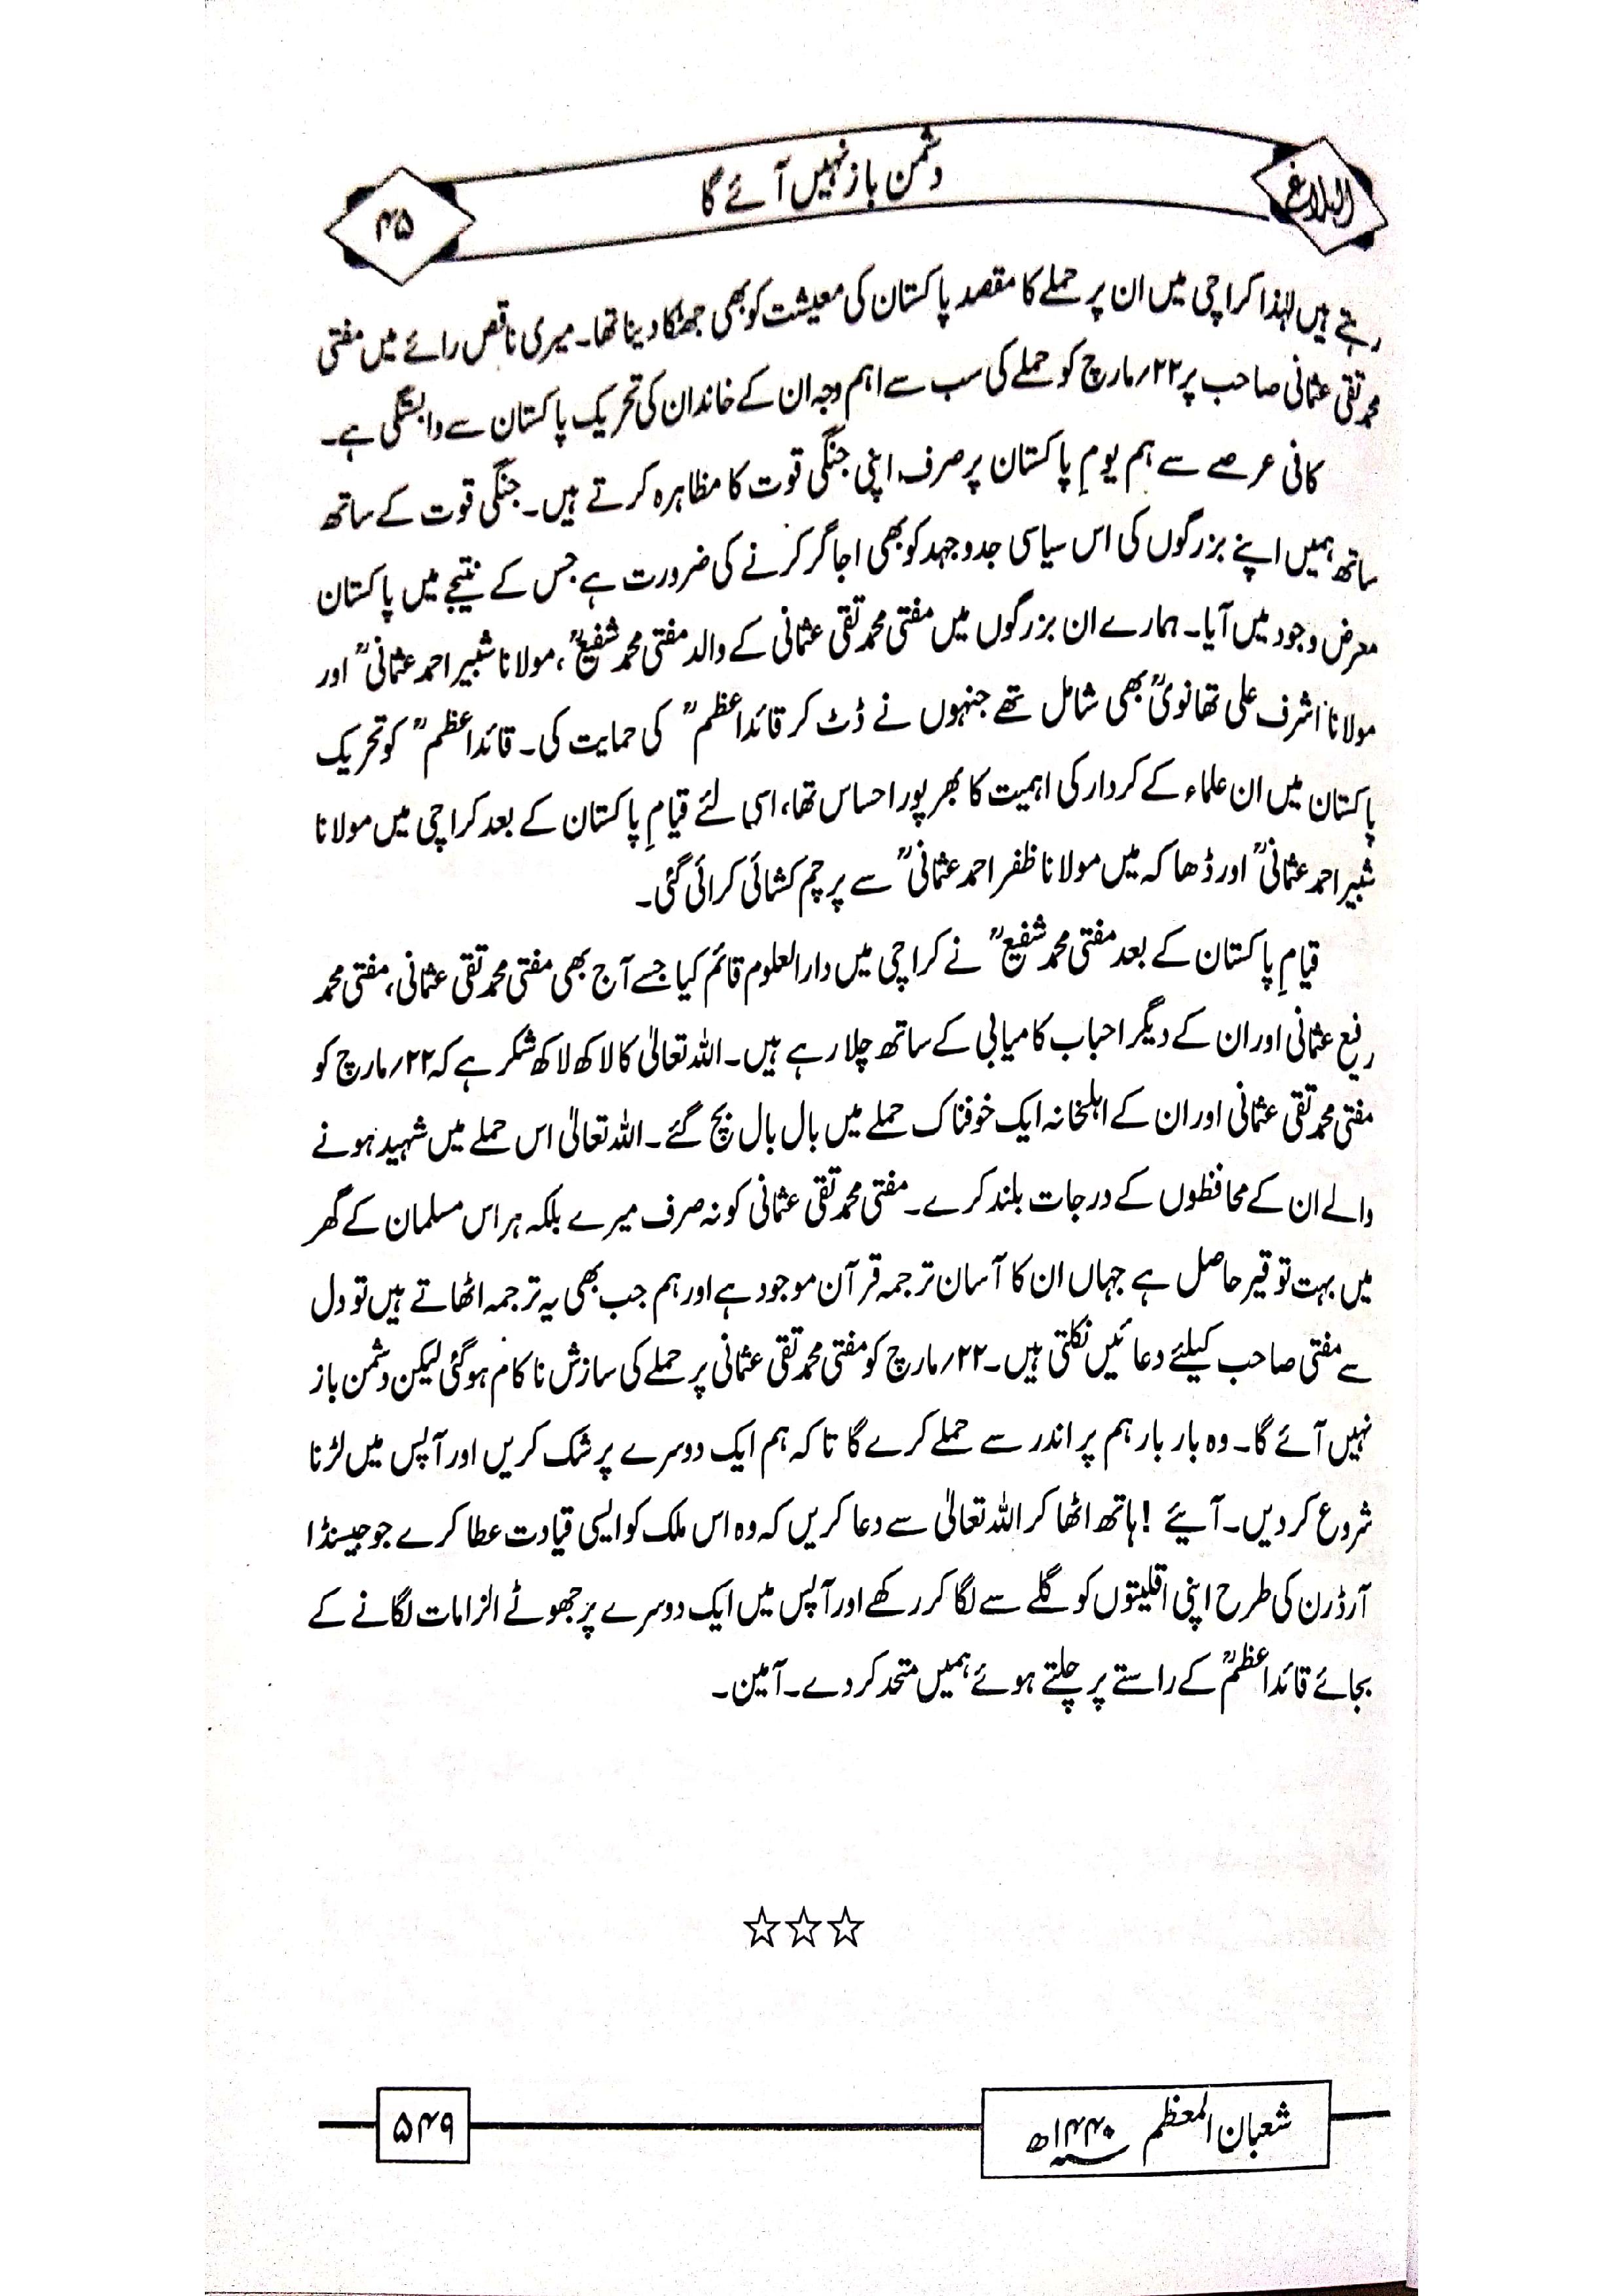 البلاغ
دشمن باز نہیں آئے گا
۴۵
رہتے ہیں لہٰذا کراچی میں ان پر حملے کا مقصد پاکستان کی معیشت کو بھی جھٹکا دینا تھا۔ میری ناقص رائے میں مفتی
محمد تقی عثمانی صاحب پر ۲۲؍مارچ کو حملے کی سب سے اہم وجہ ان کے خاندان کی تحریک پاکستان سے وابستگی ہے۔
کافی عرصے سے ہم یومِ پاکستان پر صرف اپنی جنگی قوت کا مظاہرہ کرتے ہیں۔ جنگی قوت کے ساتھ
ساتھ ہمیں اپنے بزرگوں کی اس سیاسی جدوجہد کو بھی اجاگر کرنے کی ضرورت ہے جس کے نتیجے میں پاکستان
معرض وجود میں آیا۔ ہمارے ان بزرگوں میں مفتی محمد تقی عثمانی کے والد مفتی محمد شفیعؒ، مولانا شبیر احمد عثمانیؒ اور
مولانا اشرف علی تھانویؒ بھی شامل تھے جنہوں نے ڈٹ کر قائداعظمؒ کی حمایت کی۔ قائداعظمؒ کو تحریک
پاکستان میں ان علماء کے کردار کی اہمیت کا بھرپور احساس تھا، اسی لئے قیامِ پاکستان کے بعد کراچی میں مولانا
شبیر احمد عثمانیؒ اور ڈھاکہ میں مولانا ظفر احمد عثمانیؒ سے پرچم کشائی کرائی گئی۔
قیامِ پاکستان کے بعد مفتی محمد شفیعؒ نے کراچی میں دارالعلوم قائم کیا جسے آج بھی مفتی محمد تقی عثمانی، مفتی محمد
رفیع عثمانی اور ان کے دیگر احباب کامیابی کے ساتھ چلا رہے ہیں۔ اللہ تعالیٰ کا لاکھ لاکھ شکر ہے کہ ۲۲؍مارچ کو
مفتی محمد تقی عثمانی اور ان کے اہلخانہ ایک خوفناک حملے میں بال بال بچ گئے۔ اللہ تعالیٰ اس حملے میں شہید ہونے
والے ان کے محافظوں کے درجات بلند کرے۔ مفتی محمد تقی عثمانی کو نہ صرف میرے بلکہ ہر اس مسلمان کے گھر
میں بہت توقیر حاصل ہے جہاں ان کا آسان ترجمہ قرآن موجود ہے اور ہم جب بھی یہ ترجمہ اٹھاتے ہیں تو دل
سے مفتی صاحب کیلئے دعائیں نکلتی ہیں۔ ۲۲؍مارچ کو مفتی محمد تقی عثمانی پر حملے کی سازش ناکام ہوگئی لیکن دشمن باز
نہیں آئے گا۔ وہ بار بار ہم پر اندر سے حملے کرے گا تاکہ ہم ایک دوسرے پر شک کریں اور آپس میں لڑنا
شروع کردیں۔ آیئے! ہاتھ اٹھا کر اللہ تعالیٰ سے دعا کریں کہ وہ اس ملک کو ایسی قیادت عطا کرے جو جیسنڈا
آرڈرن کی طرح اپنی اقلیتوں کو گلے سے لگا کر رکھے اور آپس میں ایک دوسرے پر جھوٹے الزامات لگانے کے
بجائے قائداعظمؒ کے راستے پر چلتے ہوئے ہمیں متحد کردے۔ آمین۔
☆☆☆
شعبان المعظم ۱۴۴۰ھ
۵۴۹